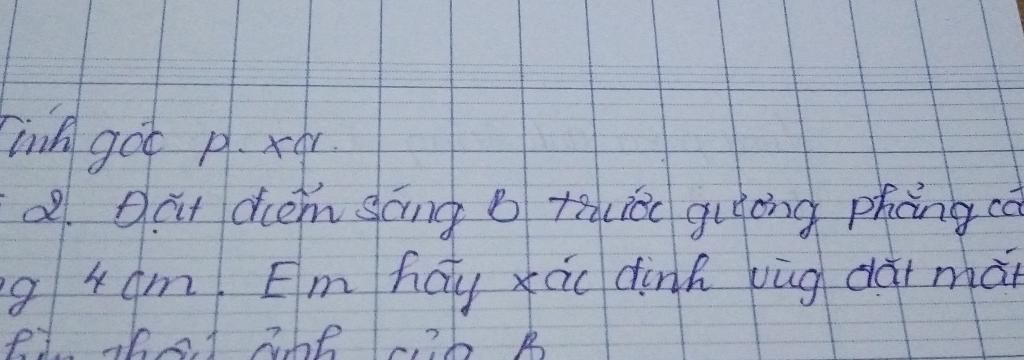 Tính góc p. xạ.
2. Đặt điểm sáng B trước gương phẳng cá
g 4 cm. Em hãy xác định vùg đặt mắt
thấy ảnh của B